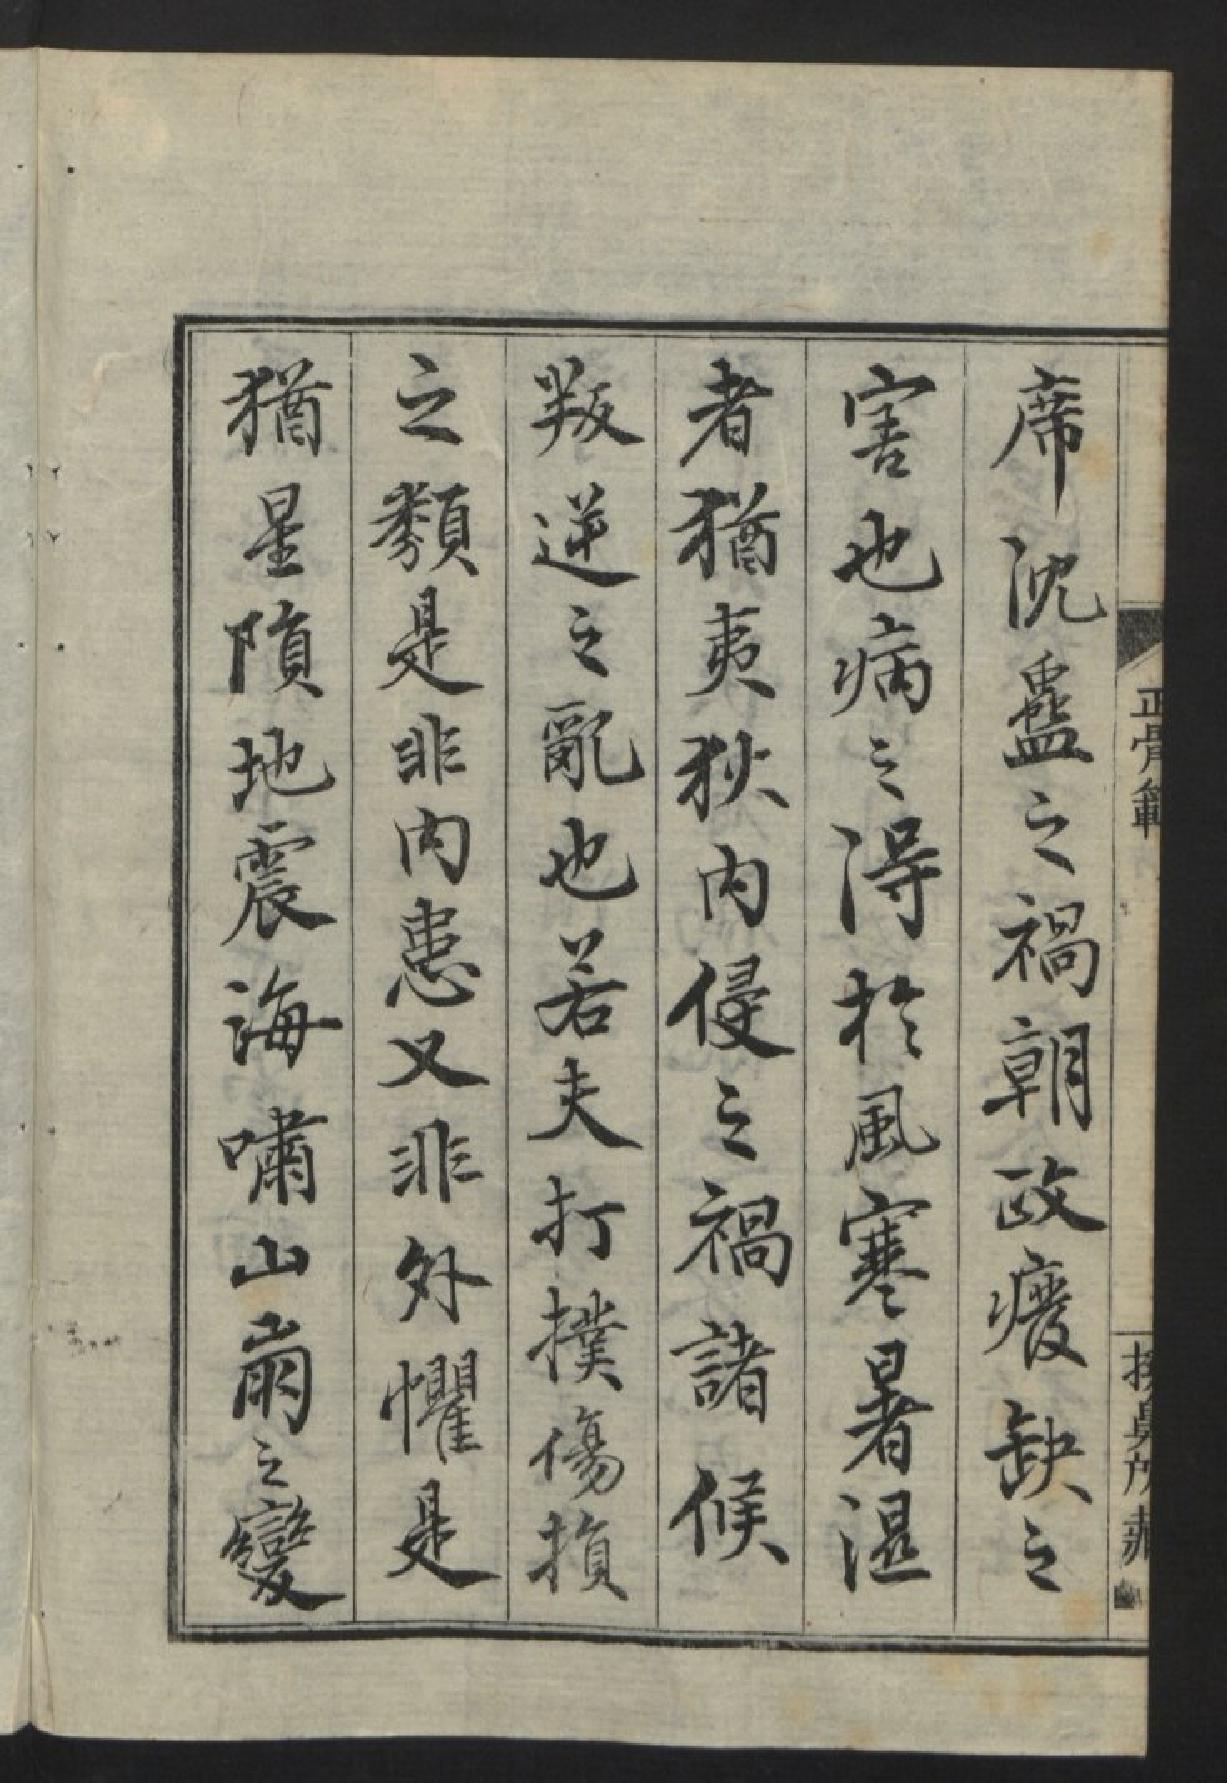 席沈盬之禍朝政癈缺之
害也病之得於風寒暑濕
者猶夷狄内侵之禍諸候
叛逆之亂也若夫打撲傷損
之類是非内患又非外懼是
猶星隕地震海嘯山崩之變
正骨範